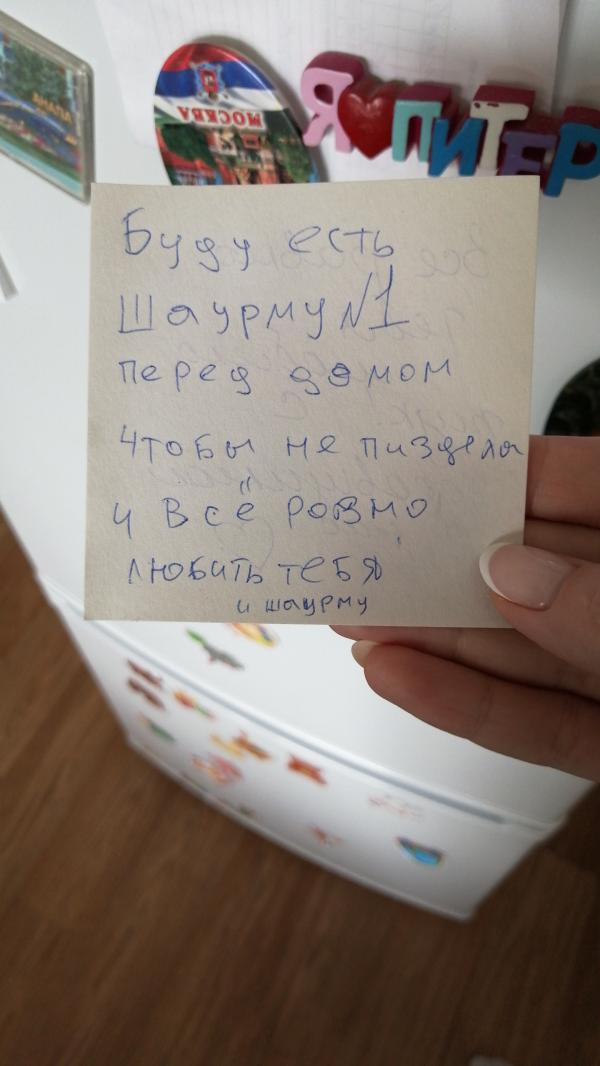 АНАПА
МОСКВА
Я ПИТЕР
Буду есть
Шаурму №1
перед домом
чтобы не пиздела
и всё ровно
любить тебя
и шаурму